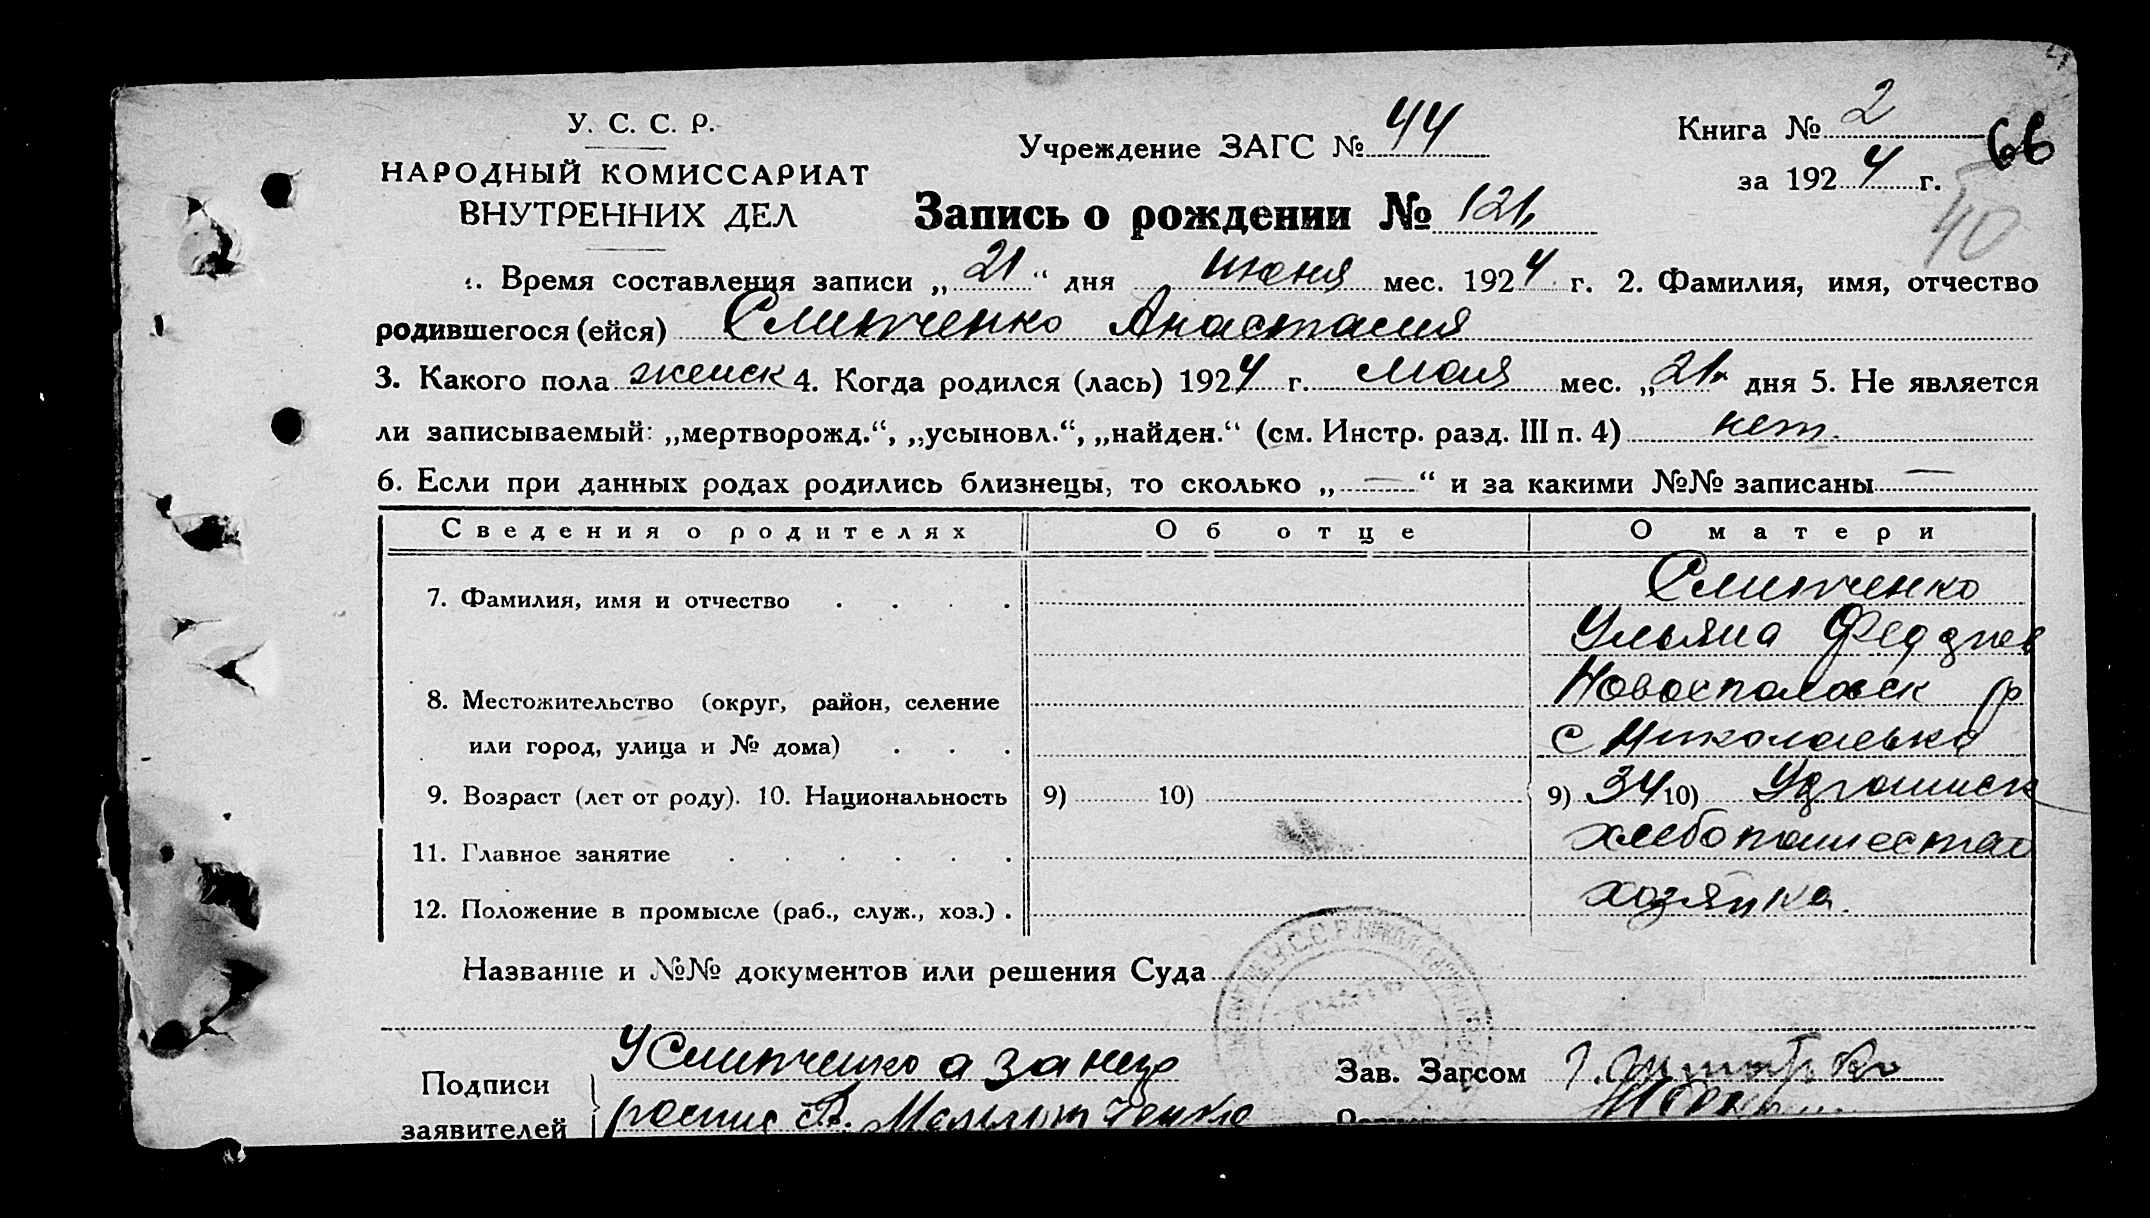 У. С. С. Р.
НАРОДНЫЙ КОМИССАРИАТ
ВНУТРЕННИХ ДЕЛ
Учреждение ЗАГС № 44
Книга № 2
за 1924 г.
66
40
Запись о рождении № 121
1. Время составления записи „21“ дня июня мес. 1924 г. 2. Фамилия, имя, отчество
родившегося (ейся) Слипченко Анастасия
3. Какого пола женск 4. Когда родился (лась) 1924 г. мая мес. „21 дня 5. Не является
ли записываемый: „мертворожд.“, „усыновл.“, „найден.“ (см. Инстр. разд. III п. 4) нет.
6. Если при данных родах родились близнецы, то сколько „—“ и за какими №№ записаны —
Сведения о родителях Об отце О матери
7. Фамилия, имя и отчество Слипченко
Ульяна
8. Местожительство (округ, район, селение Новоспасовск р
или город, улица и № дома) с Николаевка
9. Возраст (лет от роду). 10. Национальность 9) 10) 9) 34 10) Украинск
11. Главное занятие хлебопашество
12. Положение в промысле (раб., служ., хоз.) хозяйка.
Название и №№ документов или решения Суда
Подписи УСлипченко а за нее
заявителей роспис А.
Зав. Загсом